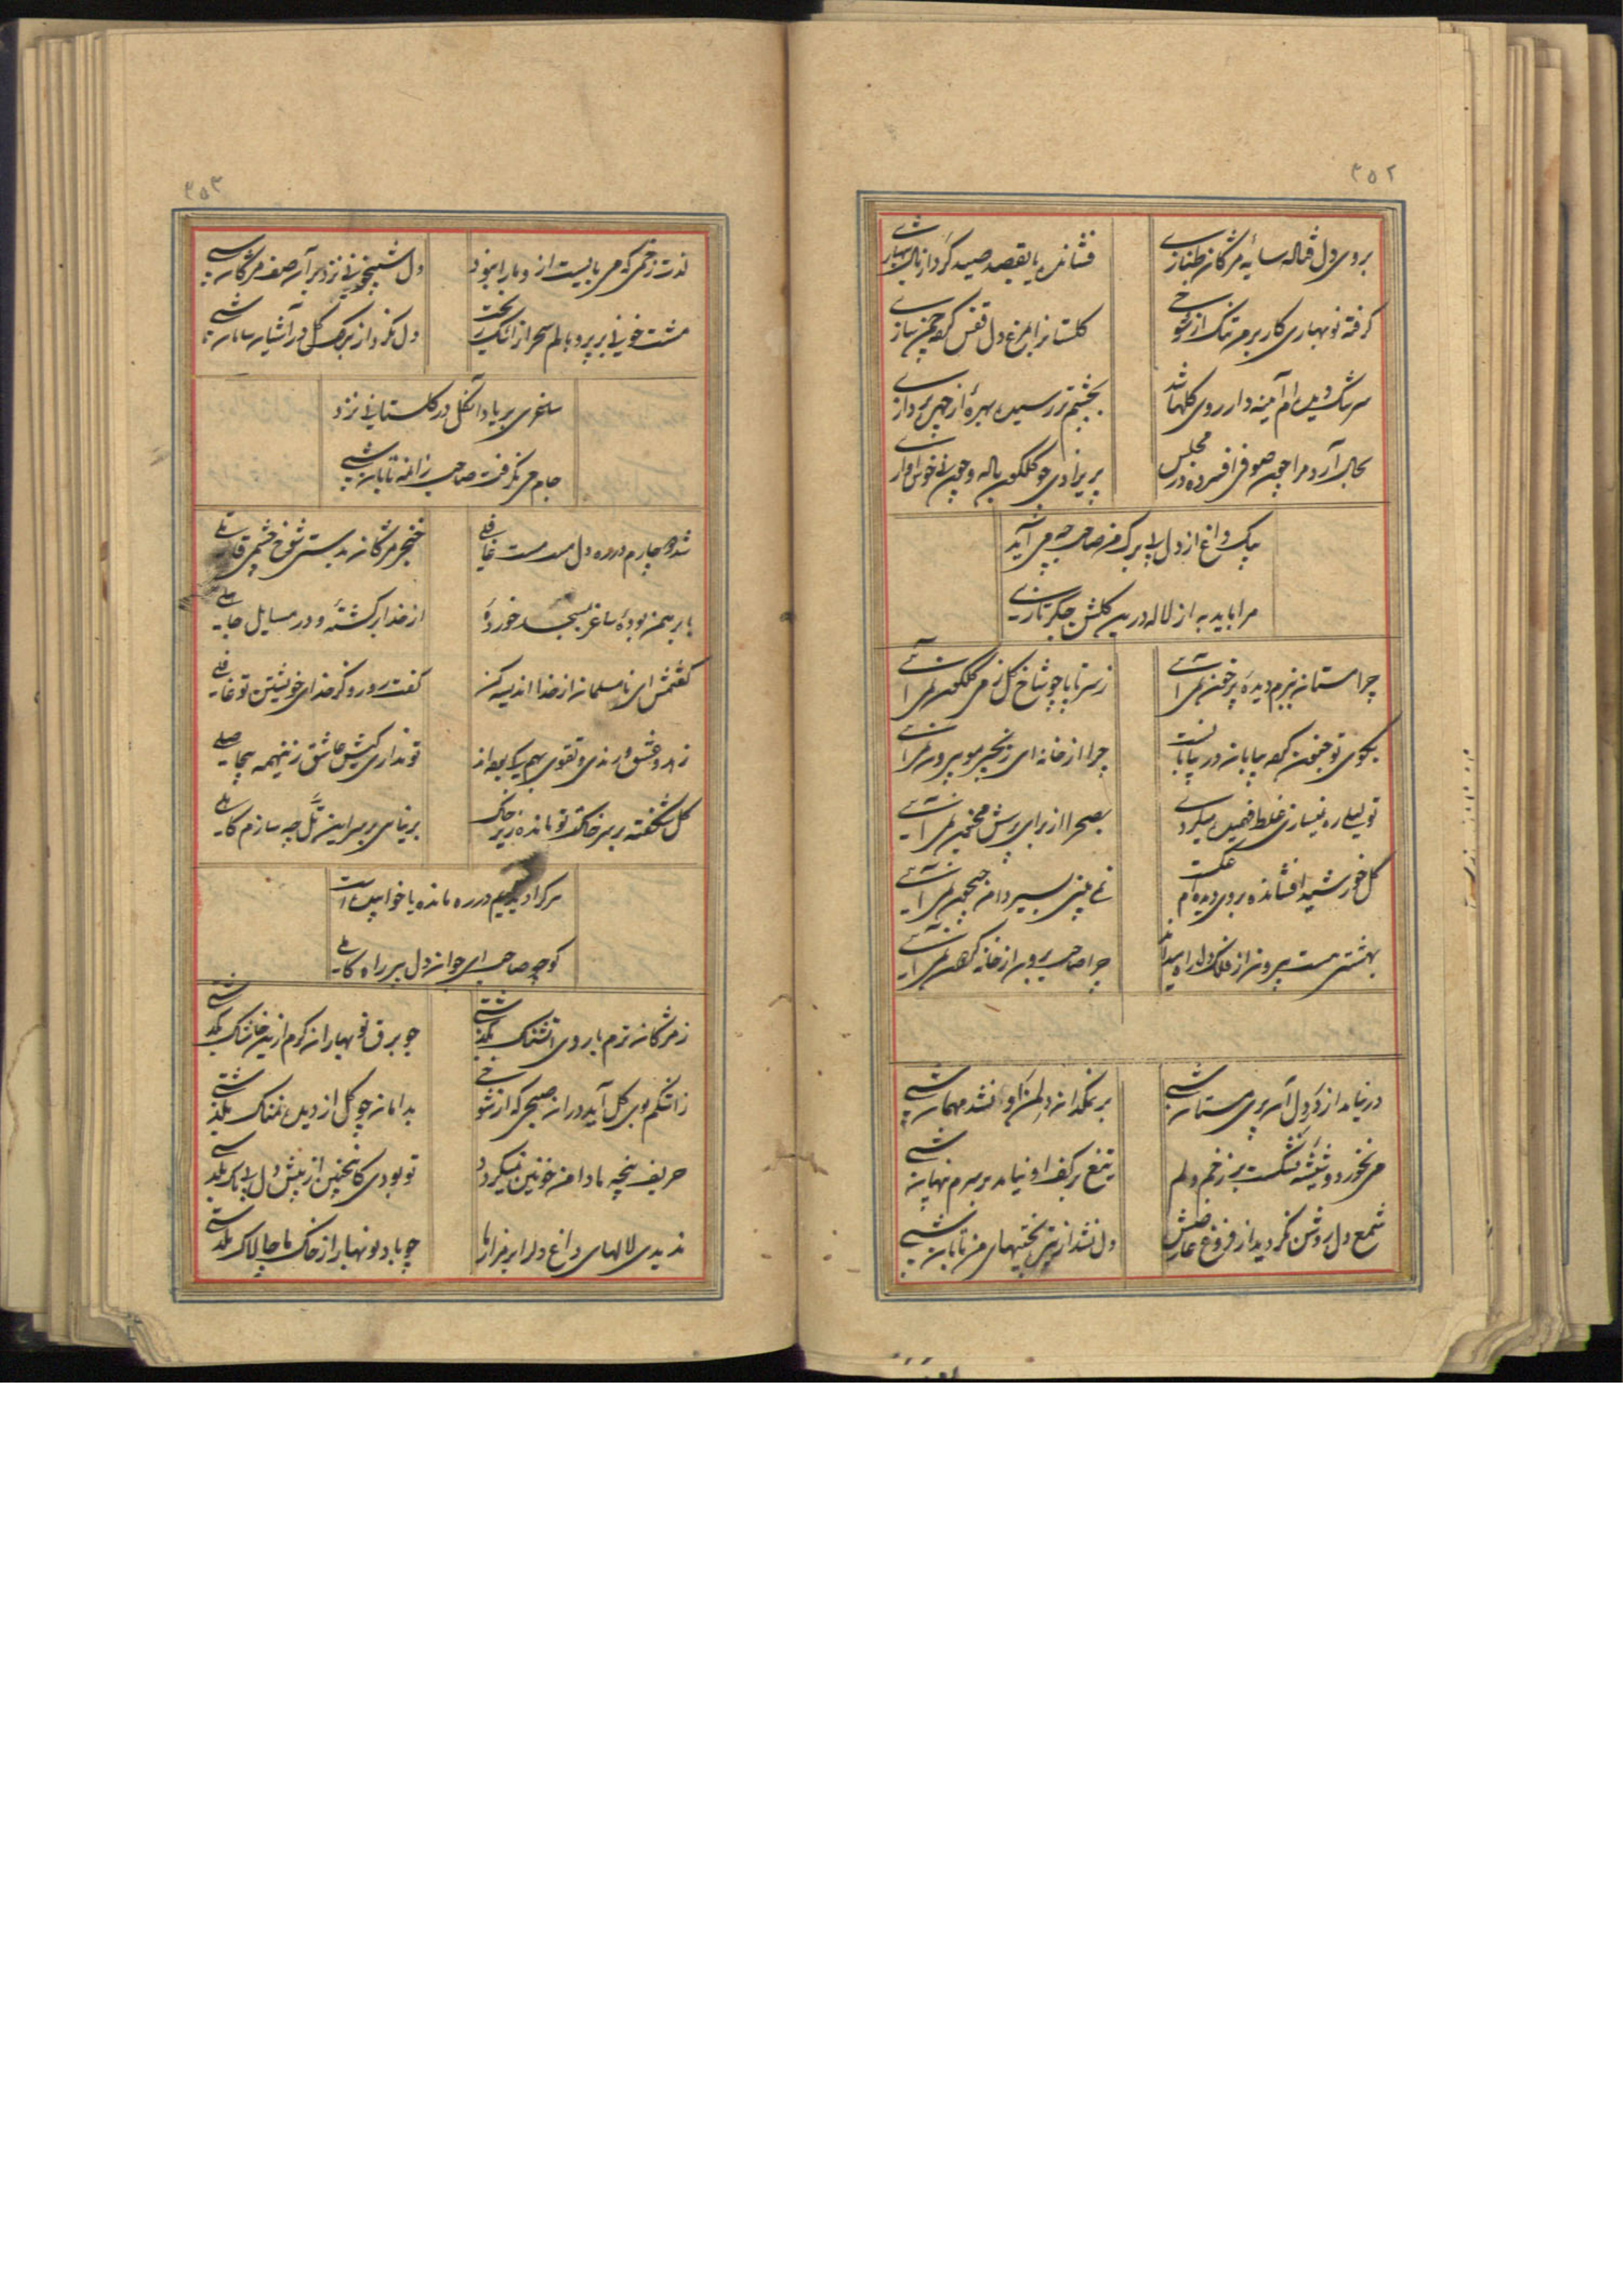 ۳۵۲
بروی دل فتاله سایه مژگان طنازی
فشانده با بقصد صید کرد از ناله شهبازی
گرفته نوبهاری کار بر من تنگ از شوخی
گلستانرا بمرغ دل قفس کرده چمن سازی
سرشک دیده‌ام آئینه دار روی گلها شد
بچشم تر رسیده بهره از چهره پردازی
بحال آرد مرا چون صوفی افسرده در مجلس
پریزادی چو گلگون باله و چون نی خوش آوازی
داغ از دل من صاحب چه می آید
مرا باید به از لاله درین گلشن جگرتازی
چرا مستانه بزم دیده پرخون نمی آئی
ز سر تا پا چو شاخ گل ز می گلگون نمی آئی
بکوی تو جنون کرده بیابان در بیابانست
چرا از خانه ای زنجیر مو بیرون نمی آئی
تو لیلی ره نیسازی غلط فهمیده میگردی
بصحرا از برای پرسش مجنون نمی آئی
گل خورشید افشانده بروی دیده‌ام عکست
نمی بینی بسیر دامن جیحون نمی آئی
بهشتی هست بیرون از فلک دل راه پیدا
چرا صاحب برون از خانه گردون نمی آئی
در نیامد از در دل آن پری مستانه شبی
بر نمکدان دلم از او نشد مهمان شبی
می نخورد و شیشه نشکست بر زخم دلم
تیغ بر کف او نیامد بر سرم پنهان شبی
شمع دل روشن نگردید از فروغ عارضش
دل نشد از تیره بختیهای من تابان شبی
۳۵۳
لذت زخمی که می بایست از و ما را نبود
دل شبیخونی نزد بر آن صف مژگان شبی
مشت خونی بر پر و بالم سحر از اشک ریخت
دل نکرد از برگ گل در آشیان سامان شبی
ساغری بر یاد آن گل در گلستانی نزد
جام می نگرفت صاحب زان مه تابان شبی
شد دچارم در ره دل مست مست غافلی
خنجر مژگان بدستی شوخ چشمی قاتلی
با برهمن بوده ساغر بمسجد خورده
از خدا برگشته و در مسایل جاهلی
گفتمش ای نا مسلمان از خدا اندیشه کن
گفت رو رو کز خدای خویشتن تو غافلی
زهد و عشق و رندی و تقوی بهم یک بوده‌اند
تو نداری کیش عاشق زینهمه بیحاصلی
گل شکفته بر سر خاک تو مانده زیر خاک
بر نیامدی بر سر این تل چه سازم کاهلی
هر کرا دیدیم در ره مانده یا خوابیده است
کو چو صاحب ای جوان دل بر راه کاملی
ز مژگان ترم با روی آتشناک بگذشتی
چو برق نوبهاران گرم ازین خاشاک بگذشتی
ز اشکم بوی گل آید در آن صبحی که از شوخی
بدامان چو گل از دیده نمناک بگذشتی
حریف پنجه ما دامن خونین نمیگردد
تو بودی کاینچنین از پیش دل بیباک بگذشتی
ندیدی لالهای داغ دل را بر مزار ما
چو باد نوبهار از خاک ما چالاک بگذشتی